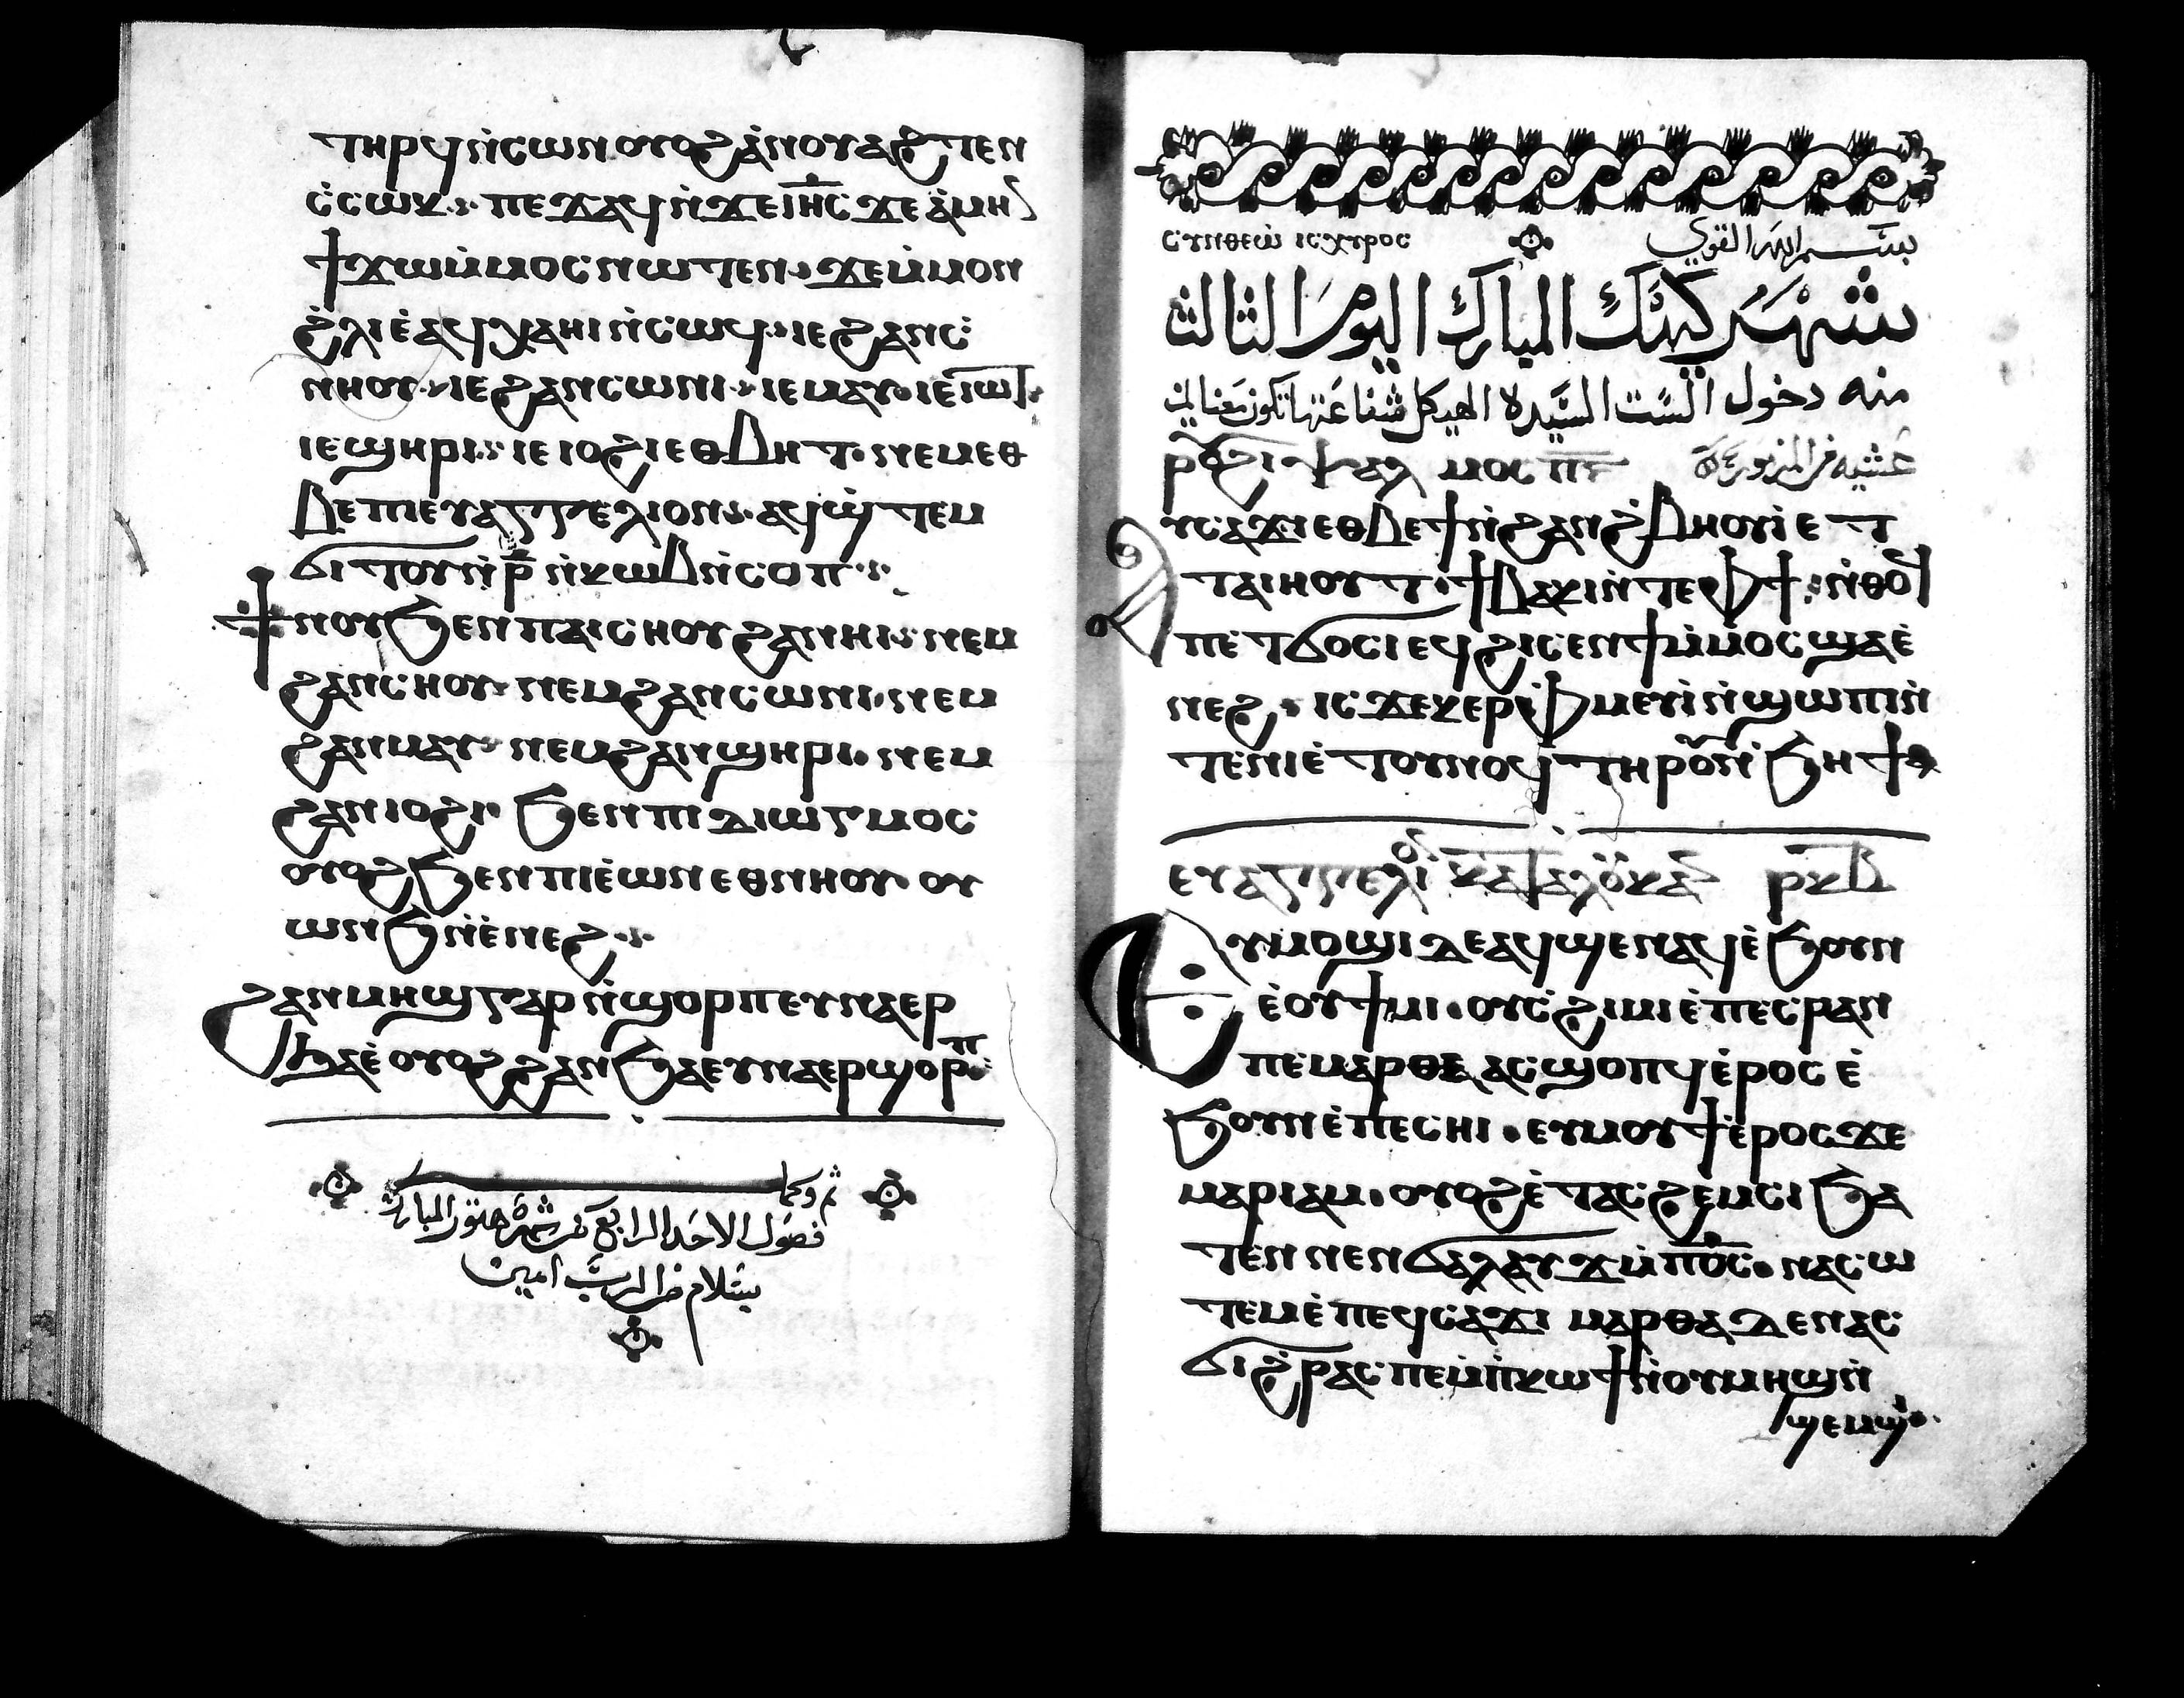 ⲧⲏⲣϥⲛ̀ⲥⲱⲛⲟⲩⲟϩⲁ̀ⲛⲟⲩⲁϩⲧⲉⲛ
ⲥ̀ⲥⲱⲕ ⲡⲉϫⲁϥⲛ̀ϫⲉⲓⲏ̅ⲥ ϫⲉⲁ̀ⲙⲏ
ϯϫⲱⲙ̀ⲙⲟⲥⲛⲱⲧⲉⲛ ϫⲉⲙ̀ⲙⲟⲛ
ϩ̀ⲗⲓⲉ̀ⲁϥⲭⲁⲏⲓⲛ̀ⲥⲱϥ ⲓⲉϩⲁⲛⲥ̀
ⲛⲏⲟⲩ ⲓⲉϩⲁⲛⲥⲱⲛⲓ ⲓⲉⲙⲁⲩ ⲓⲉⲓⲱⲧ
ⲓⲉϣⲏⲣⲓ ⲓⲉⲓⲟϩⲓⲉⲑⲃⲏⲧ ⲛⲉⲙⲉⲑ
ⲃⲉⲡⲓⲉⲩⲁⲅⲅⲉⲗⲓⲟⲛ ⲁϥϣ̀ⲧⲉⲙ
ϭⲓⲧⲟⲩⲛ̀ⲣ̅ ⲛ̀ⲕⲱⲃⲛ̀ⲥⲟⲡ
ϯⲛⲟⲩϧⲉⲛⲡⲁⲓⲥⲏⲟⲩϩⲁⲛⲏⲓ ⲛⲉⲙ
ϩⲁⲛⲥ̀ⲛⲏⲟⲩ ⲛⲉⲙϩⲁⲛⲥⲱⲛⲓ ⲛⲉⲙ
ϩⲁⲛⲙⲁⲩ ⲛⲉⲙϩⲁⲛϣⲏⲣⲓ ⲛⲉⲙ
ϩⲁⲛⲓⲟϩⲓ ϧⲉⲛⲡⲓⲇⲓⲱⲅⲙⲟⲥ
ⲟⲩⲟϩϧⲉⲛⲡⲓⲉ̀ⲱⲛⲉⲑⲛⲏⲟⲩ ⲟⲩ
ⲱⲛϧⲛ̀ⲉ̀ⲛⲉϩ
ϩⲁⲛⲙⲏϣⲅⲁⲣⲛ̀ϣⲟⲣⲡⲉⲩⲛⲁⲉⲣ
ϧⲁⲉ̀ ⲟⲩⲟϩϩⲁⲛϧⲁⲉⲩⲛⲁⲉⲣϣⲟⲣⲡ
تم وكمل
فصول الاحد الرابع من شهر هتور المبارك
بسلام من الرب امين
ⲥⲩⲛⲑⲉⲱ̀ ⲓⲥⲭⲩⲣⲟⲥ بسم الله القوي
شهر كيهك المبارك اليوم الثالث
منه دخول الست السيدة الهيكل شفاعتها تكون معنا امين
ⲣⲟϩⲓ ⲯⲁⲗⲙⲟⲥ ⲡ̅ⲋ̅ عشية من المزمور
ⲁⲩⲥⲁϫⲓⲉⲑⲃⲉϯⲛ̀ϩⲁⲛϩ̀ⲃⲏⲟⲩⲓ̀ⲉⲧ
ⲧⲁⲓⲏⲟⲩⲧ ϯⲃⲁⲕⲓⲛ̀ⲧⲉⲫϯ ⲛ̀ⲑⲟϥ
ⲡⲉⲧϭⲟⲥⲓⲉϥϩⲓⲥⲉⲛϯⲙ̀ⲙⲟⲥϣⲁⲉ̀
ⲛⲉϩ ⲓⲥ ϫⲉⲕⲉⲣⲫ̀ⲙⲉⲩⲓ̀ⲛ̀ϣⲱⲡⲓⲛ̀
ⲧⲉⲛⲓⲉ̀ⲧⲟⲩⲛⲟϥ ⲧⲏⲣⲟⲩⲛ̀ϧⲏϯ
ⲉⲩⲁⲅⲅⲉⲗⲓⲟⲛ ⲕⲁⲧⲁⲗⲟⲩⲕⲁⲛ ⲣⲕⲃ
ⲉⲩⲙⲟϣⲓⲇⲉⲁϥϣⲉⲛⲁϥⲉ̀ϧⲟⲩⲛ
ⲉ̀ⲟⲩϯⲙⲓ ⲟⲩⲥ̀ϩⲓⲙⲓⲉ̀ⲡⲉⲥⲣⲁⲛ
ⲡⲉⲙⲁⲣⲑⲁ ⲁⲥϣⲟⲡϥⲉ̀ⲣⲟⲥⲉ̀
ϧⲟⲩⲛⲉ̀ⲡⲉⲥⲏⲓ ⲉⲩⲙⲟⲩϯⲉ̀ⲣⲟⲥϫⲉ
ⲙⲁⲣⲓⲁⲙ ⲟⲩⲟϩⲉ̀ⲧⲁⲥϩⲉⲙⲥⲓϧⲁ
ⲧⲉⲛⲛⲉⲛϭⲁⲗⲁⲩϫⲙ̀ⲡⲟ̅ⲥ ⲛⲁⲥⲱ
ⲧⲉⲙⲉ̀ⲡⲉϥⲥⲁϫⲓ ⲙⲁⲣⲑⲁⲇⲉⲛⲁⲥ
ϭⲓϩ̀ⲣⲁⲥⲡⲉⲙ̀ⲡ̀ⲕⲱϯⲛ̀ⲟⲩⲙⲏϣⲛ̀
ϣⲉⲙϣⲓ